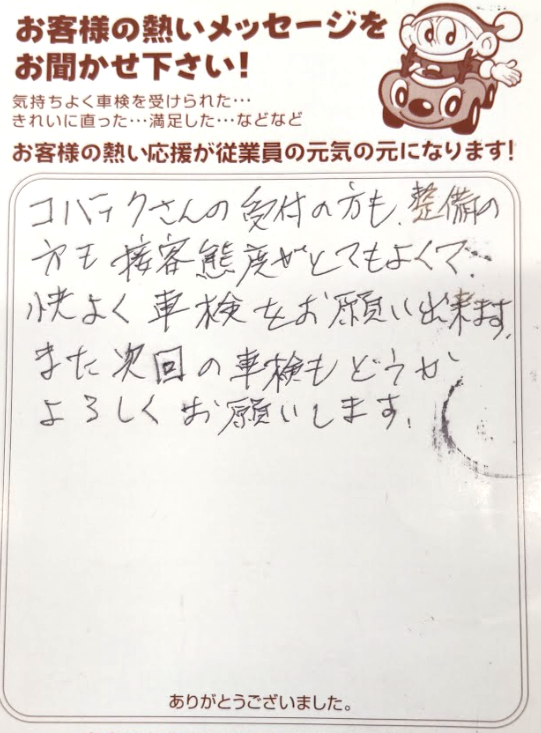 お客様の熱いメッセージを
お聞かせ下さい!
気持ちよく車検を受けられた…
きれいに直った…満足した…などなど
お客様の熱い応援が従業員の元気の元になります!
コバックさんの受付の方も、整備の
方も接客態度がとてもよくて、
快よく車検をお願い出来ます。
また次回の車検もどうか
よろしくお願いします。
ありがとうございました。